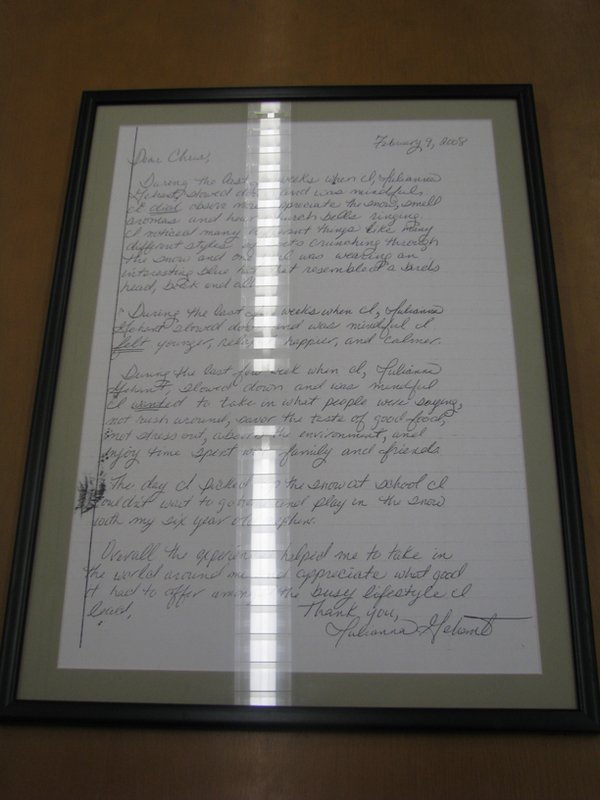 February 9, 2008
Dear Chris,
During the last weeks when I, Julianna
Gehant, slowed do and was mindful.
I did observe more appreciate the snow, smell
aromas and hea church bells ringing.
I noticed many things like many
different styles ts crunching through
the snow and one was wearing an
interesting blue ha at resembled a bird's
head, beak and all.
"During the last weeks when I, Julianna
Gehant slowed do and was mindful I
felt younger, happier, and calmer.
During the last few week when I, Julianna
Gehant, slowed down and was mindful
I wanted to take in what people were saying,
not rush around, savor the taste of good food,
not stress out, the environment, and
enjoy time spent w family and friends
The day I the snow at school I
ouldn't wait to go ho and play in the snow
with my six year old
Overall the experien helped me to take in
the world around me appreciate what good
it had to offer amon the busy lifestyle I
lead.
Thank you,
Julianna Gehant